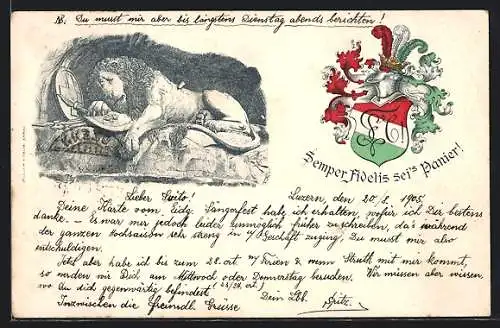 NB. Du musst mir aber bis längstens Dienstag abends berichten!
Semper Fidelis sei's Panier!
Lieber Guito!
Luzern, den 20/8. 1905
Deine Karte vom Eidg. Sängerfest habe ich erhalten, wofür ich Dir bestens
danke. – Es war mir jedoch leider unmöglich früher zu schreiben, da's während
der ganzen Hochsaison sehr streng in m/ Geschäft zuging, Du musst mir also
entschuldigen.
Jetzt aber habe ich bis zum 28. crt. m/ Ferien & wenn Struth mit mir kommt,
so werden wir Dich am Mittwoch oder Donnerstag besuchen. Wir müssen aber wissen,
wo Du dich gegenwärtig befindest (23/24. crt.)
Inzwischen die freundl. Grüsse Dein Lbb.
Spitz